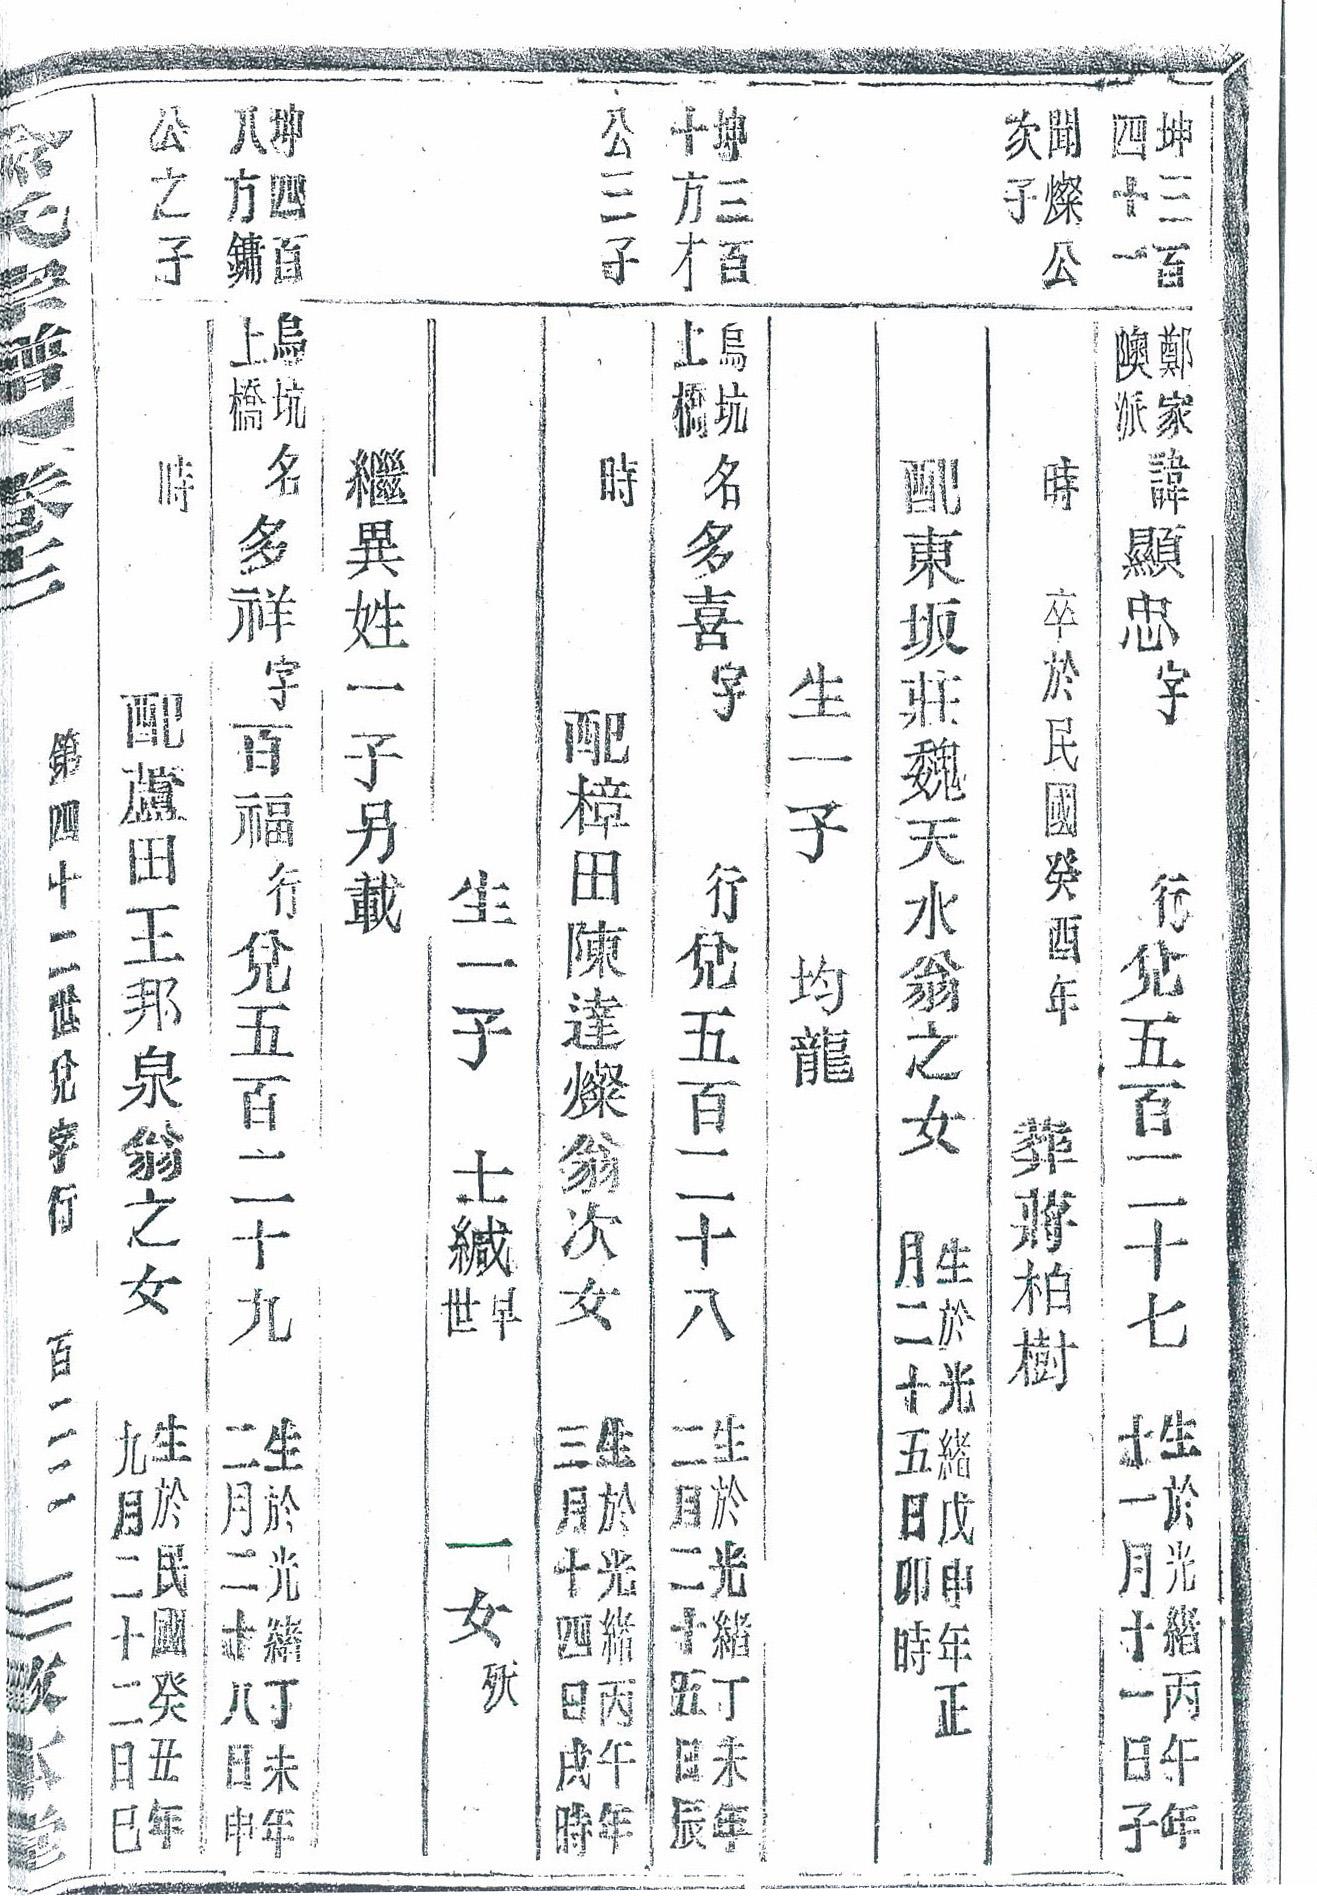 坤三百四十一
聞燦公次子
鄭家隩派 諱顯忠 字 行兌五百二十七 生於光緒丙午年十一月十一日子
時 卒於民國癸酉年 葬蔣柏樹
配東坂莊魏天水翁之女 生於光緒戊申年正月二十五日卯時
生一子 均龍
坤三百十方才
公三子
烏坑上橋 名多喜 字 行兌五百二十八 生於光緒丁未年二月二十五日辰
時 配樟田陳達燦翁次女 生於光緒丙午年三月十四日戌時
生一子 士緘 早世 一女 殀
繼異姓一子另載
坤四百八方鏞
公之子
烏坑上橋 名多祥 字百福 行兌五百二十九 生於光緒丁未年二月二十八日申
時 配蘆田王邦泉翁之女 生於民國癸丑年九月二十二日巳
宗譜 卷二 第四十二世兌字行 百二二一 三 本堂